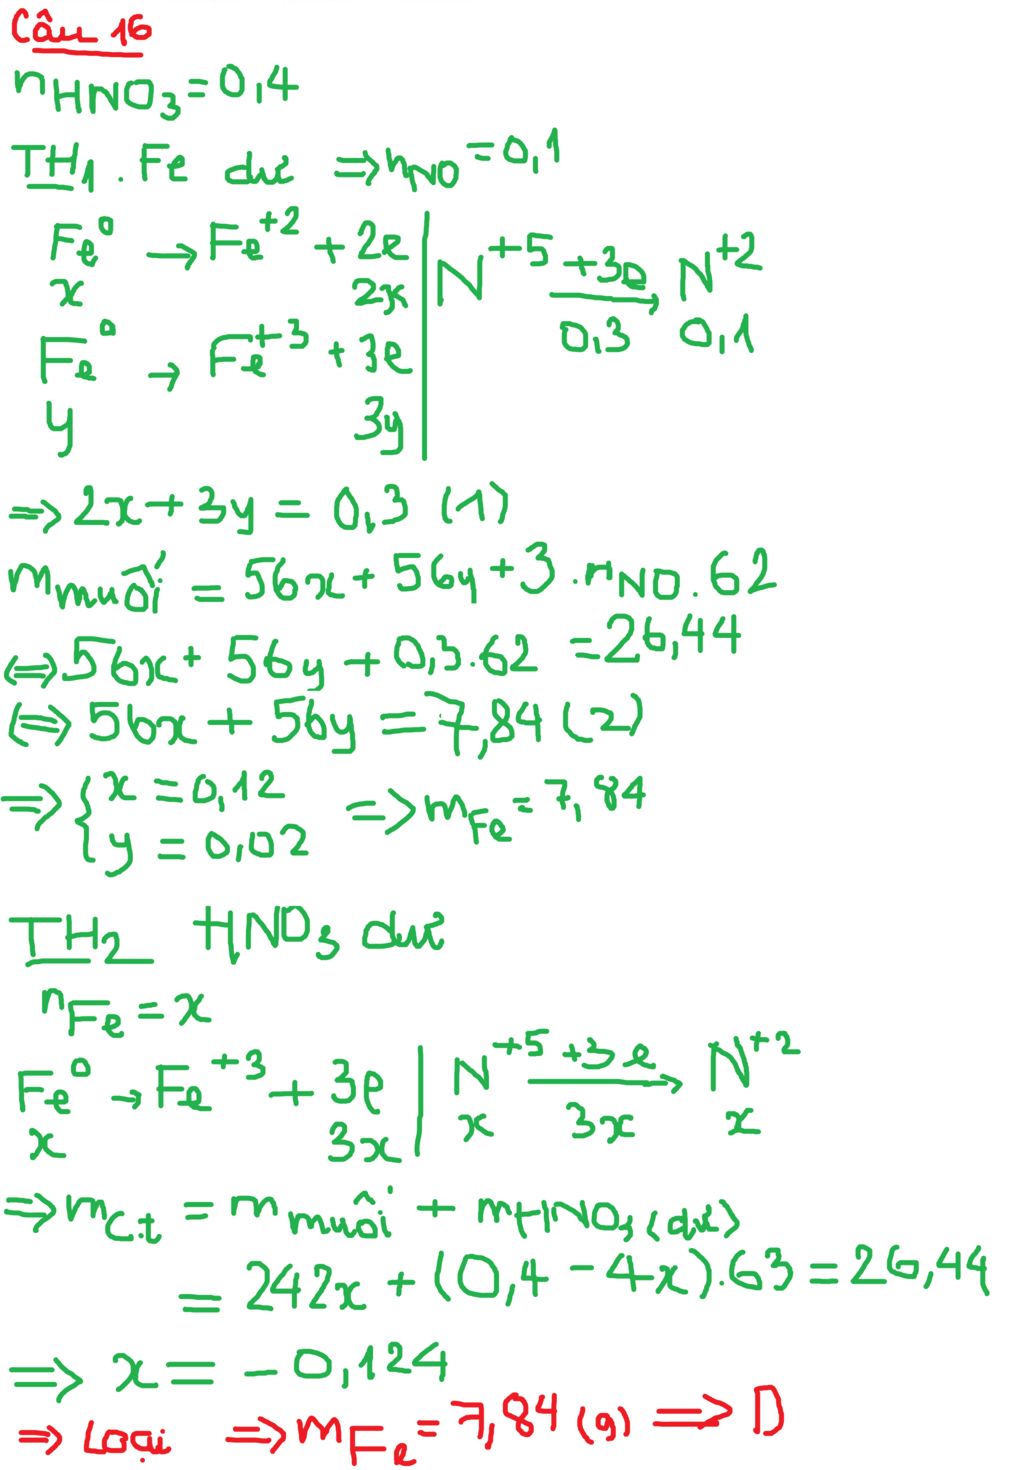 Câu 16
nHNO3 = 0,4
TH1. Fe dư ⇒ nNO = 0,1
Fe⁰ → Fe⁺² + 2e | N⁺⁵ +3e → N⁺²
x 2x 0,3 0,1
Fe⁰ → Fe⁺³ + 3e
y 3y
⇒ 2x + 3y = 0,3 (1)
mmuối = 56x + 56y + 3.nNO.62
⇔ 56x + 56y + 0,3.62 = 26,44
⇔ 56x + 56y = 7,84 (2)
⇒ { x = 0,12 ⇒ mFe = 7,84
y = 0,02
TH2 HNO3 dư
nFe = x
Fe⁰ → Fe⁺³ + 3e | N⁺⁵ +3e → N⁺²
x 3x x 3x x
⇒ mC.t = mmuối + mHNO3 (dư)
= 242x + (0,4 - 4x).63 = 26,44
⇒ x = - 0,124
⇒ Loại ⇒ mFe = 7,84 (g) ⇒ D